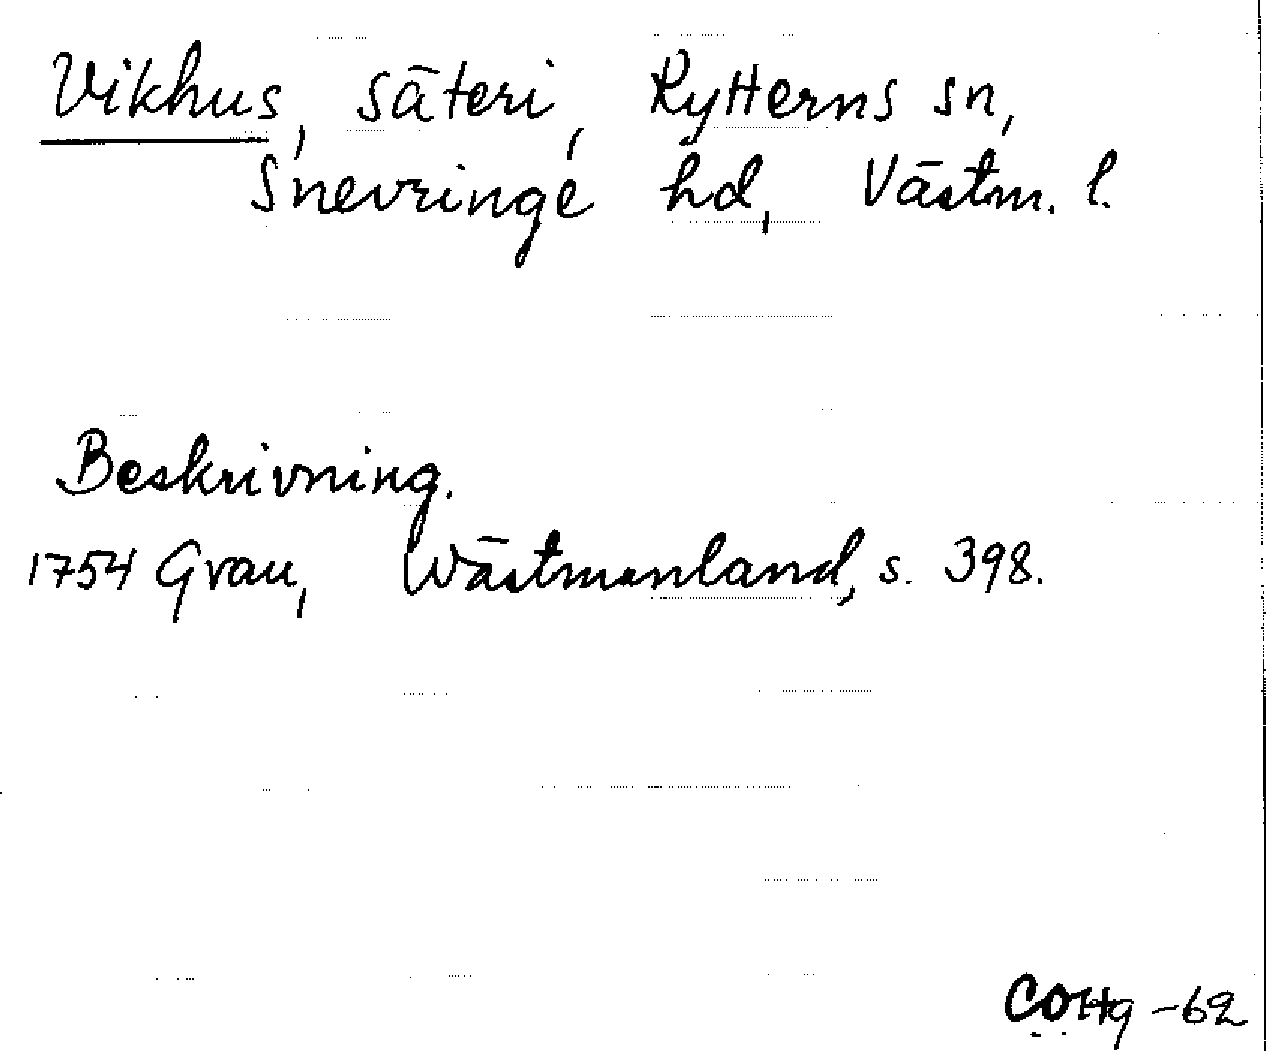 Vikhus, säteri, Rytterns sn,
Snevringe hd, Västm. l.
Beskrivning.
1754 Grau, Wästmanland, s. 398.
-62